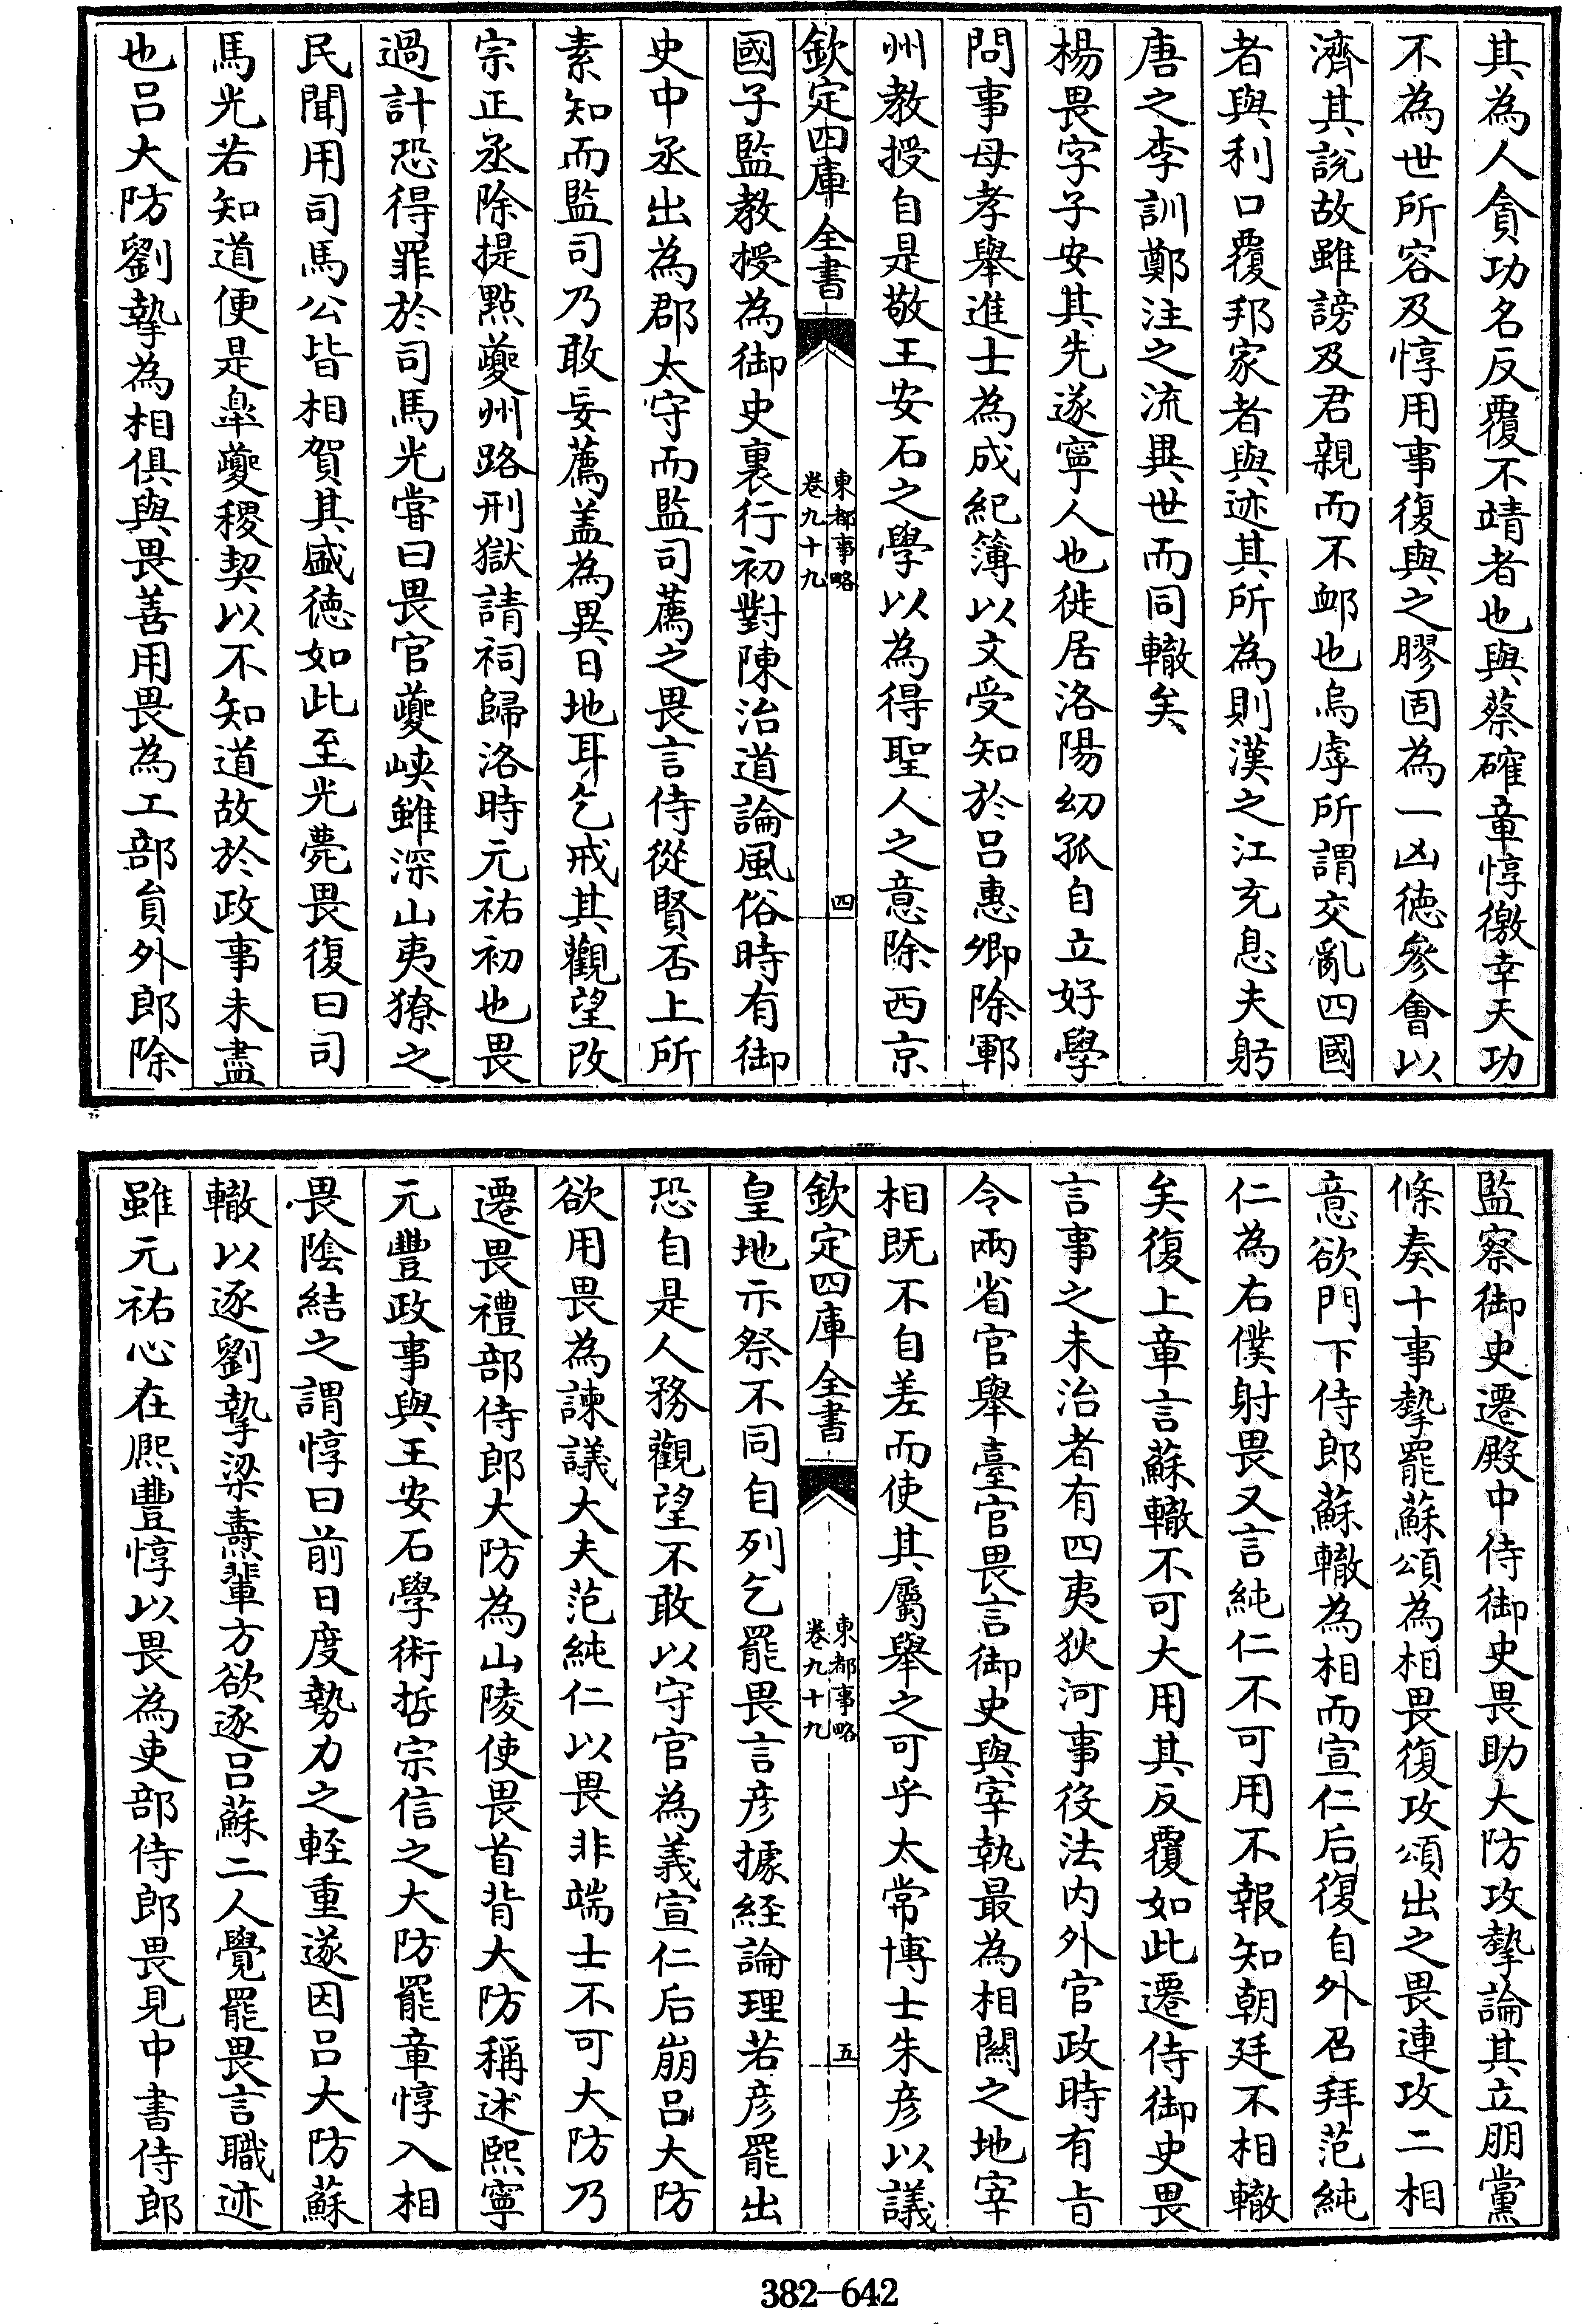 其為人貪功名反覆不靖者也與蔡確章惇徼幸天功
不為世所容及惇用事復與之膠固為一凶徳參會以
濟其說故雖謗及君親而不卹也烏虖所謂交亂四國
者與利口覆邦家者與迹其所為則漢之江充息夫躬
唐之李訓鄭注之流異世而同轍矣
楊畏字子安其先遂寧人也徙居洛陽幼孤自立好學
問事母孝舉進士為成紀簿以文受知於吕惠卿除鄆
州教授自是敬王安石之學以為得聖人之意除西京
欽定四庫全書
東都事略
卷九十九
四
國子監教授為御史裏行初對陳治道論風俗時有御
史中丞出為郡太守而監司薦之畏言侍從賢否上所
素知而監司乃敢妄薦盖為異日地耳乞戒其觀望改
宗正丞除提點夔州路刑獄請祠歸洛時元祐初也畏
過計恐得罪於司馬光嘗曰畏官夔峽雖深山夷獠之
民聞用司馬公皆相賀其盛徳如此至光薨畏復曰司
馬光若知道便是臯夔稷契以不知道故於政事未盡
也吕大防劉摯為相俱與畏善用畏為工部員外郎除
監察御史遷殿中侍御史畏助大防攻摯論其立朋黨
條奏十事摯罷蘇頌為相畏復攻頌出之畏連攻二相
意欲門下侍郎蘇轍為相而宣仁后復自外召拜范純
仁為右僕射畏又言純仁不可用不報知朝廷不相轍
矣復上章言蘇轍不可大用其反覆如此遷侍御史畏
言事之未治者有四夷狄河事役法内外官政時有㫖
令兩省官舉臺官畏言御史與宰執最為相關之地宰
相既不自差而使其屬舉之可乎太常博士朱彦以議
欽定四庫全書
東都事略
卷九十九
五
皇地示祭不同自列乞罷畏言彦據經論理若彦罷出
恐自是人務觀望不敢以守官為義宣仁后崩吕大防
欲用畏為諫議大夫范純仁以畏非端士不可大防乃
遷畏禮部侍郎大防為山陵使畏首背大防稱述熙寧
元豐政事與王安石學術哲宗信之大防罷章惇入相
畏隂結之謂惇曰前日度勢力之軽重遂因吕大防蘇
轍以逐劉摯梁燾輩方欲逐吕蘇二人覺罷畏言職迹
雖元祐心在熙豐惇以畏為吏部侍郎畏見中書侍郎
382—642